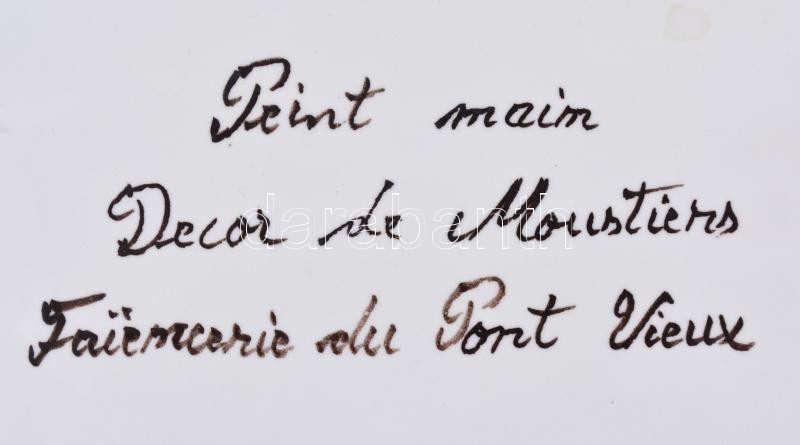 Peint main
Decor de Moustiers
darabanth
Faïencerie du Pont Vieux